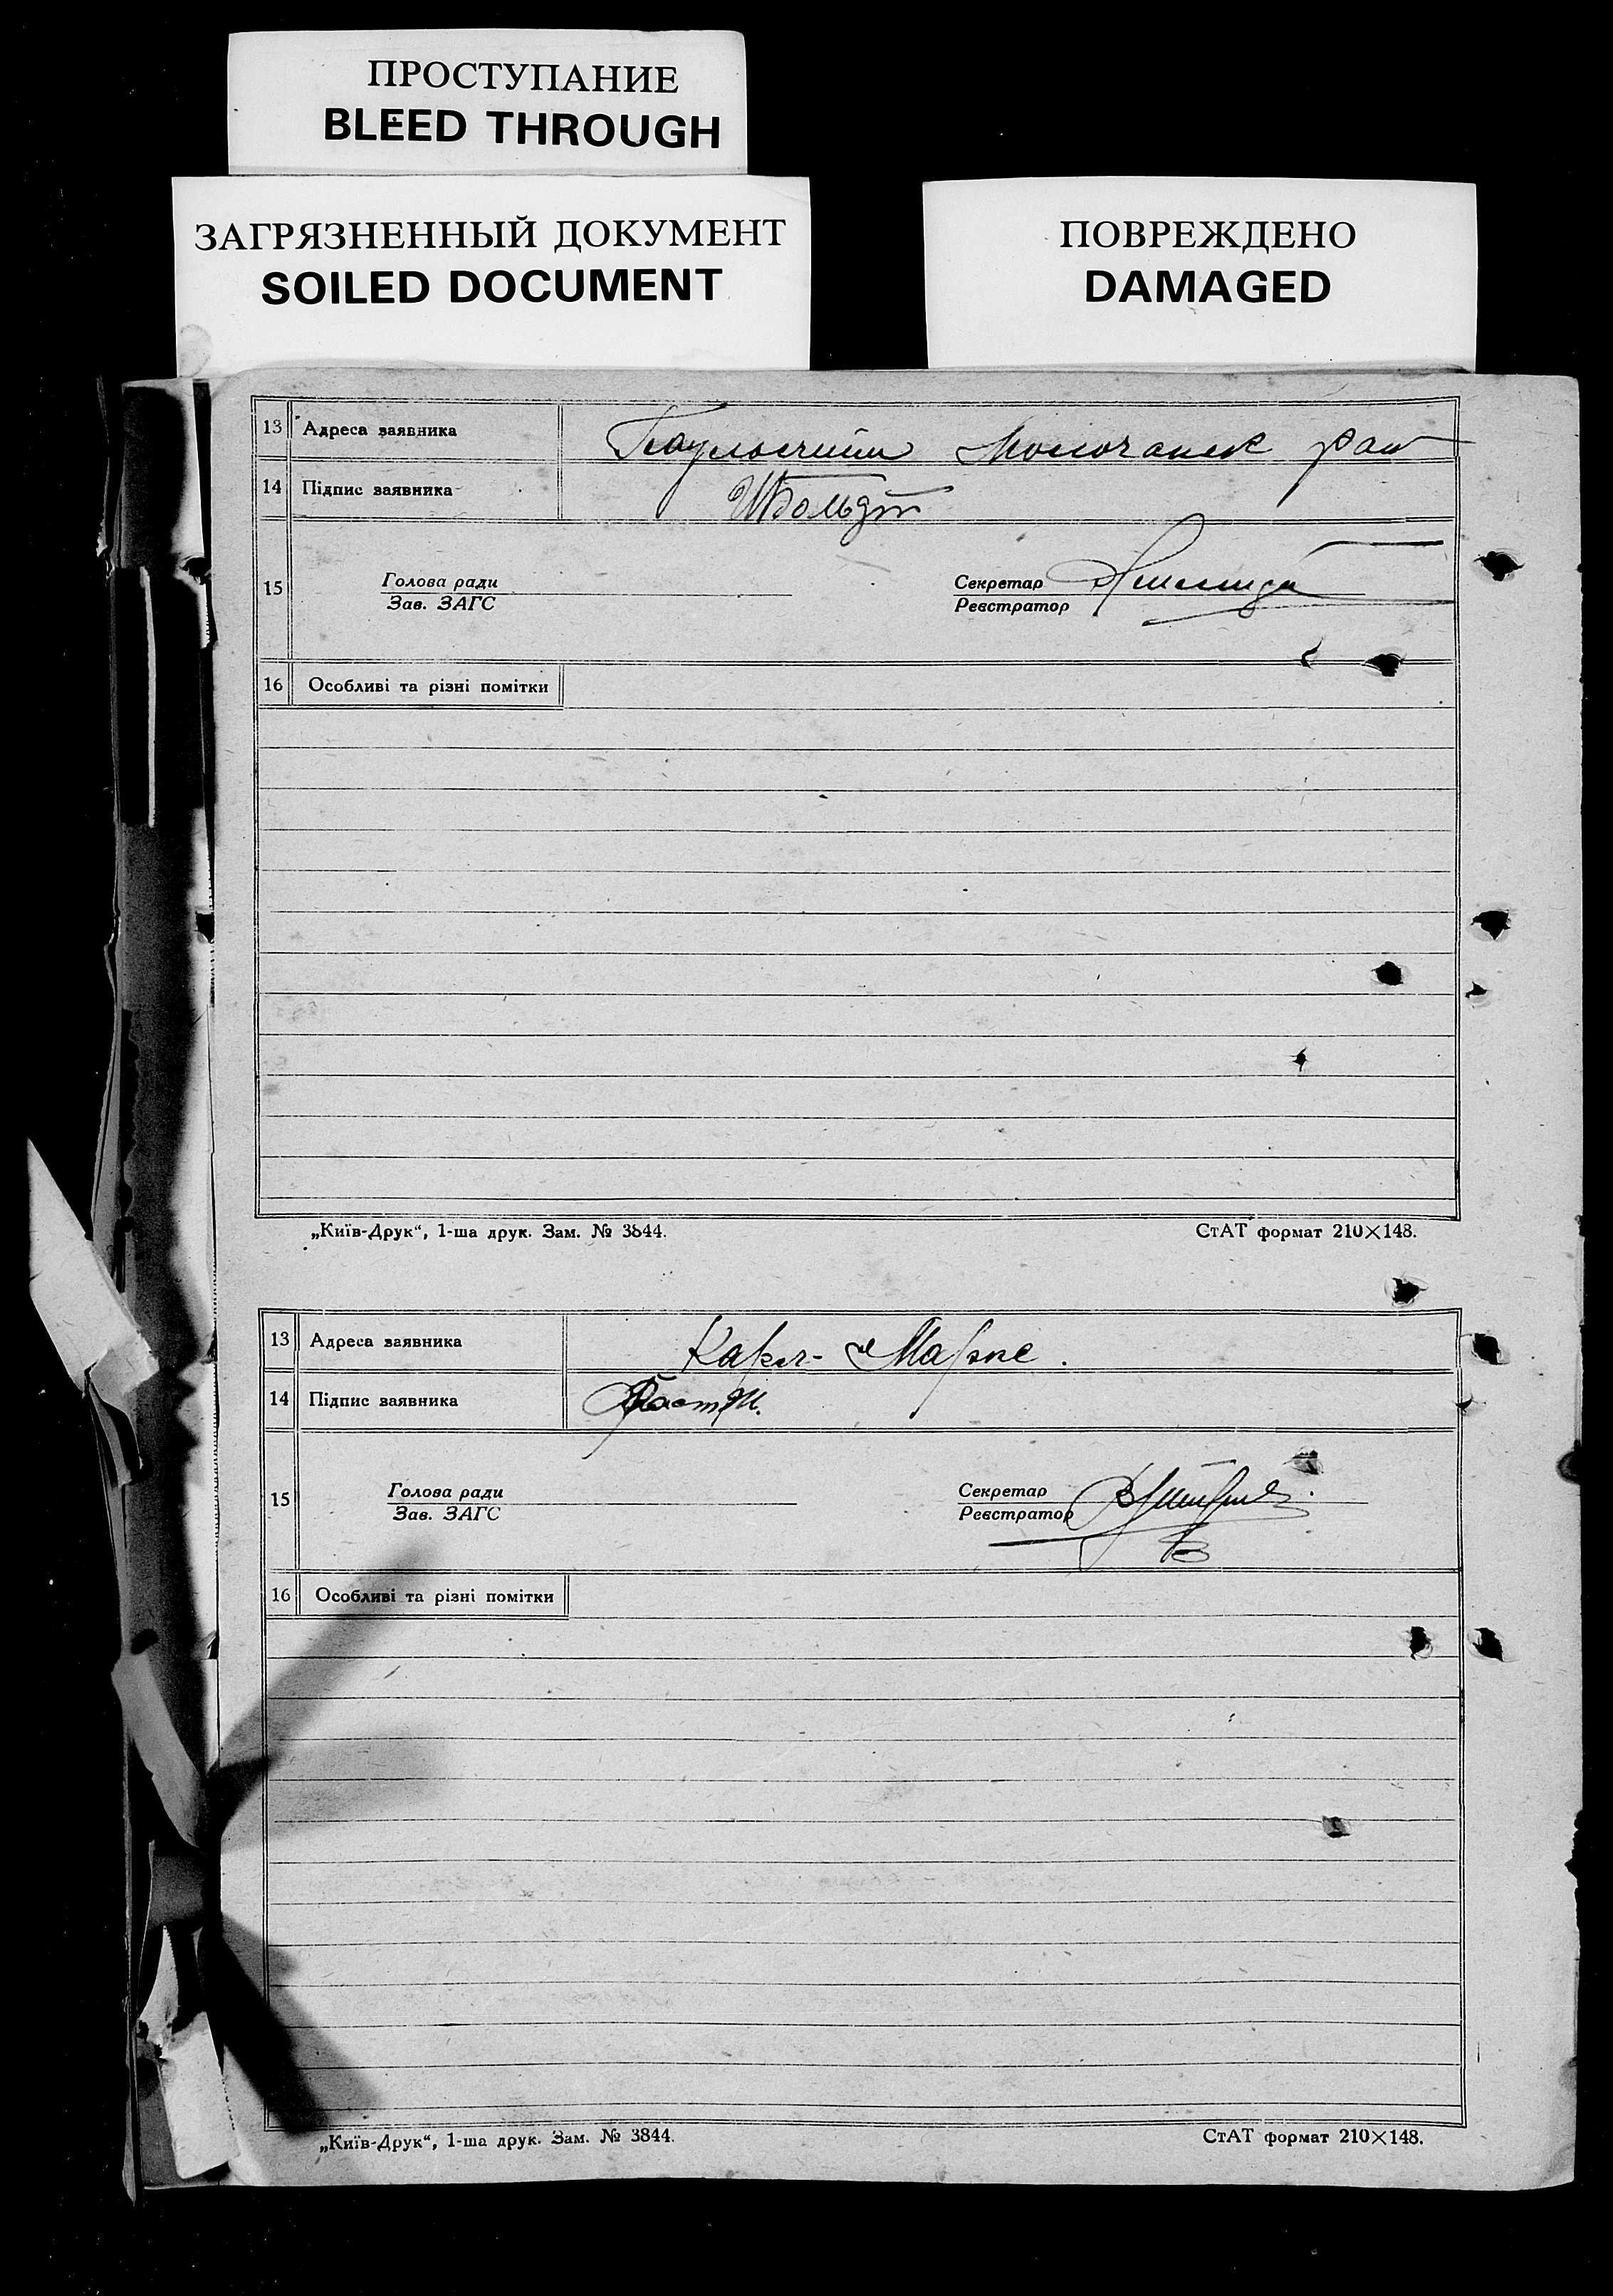 ПРОСТУПАНИЕ
BLEED THROUGH
ЗАГРЯЗНЕННЫЙ ДОКУМЕНТ
SOILED DOCUMENT
ПОВРЕЖДЕНО
DAMAGED
13 Адреса заявника Молочанск рай
14 Підпис заявника
15 Голова ради Секретар
Зав. ЗАГС Реєстратор
16 Особливі та різні помітки
„Київ-Друк“, 1-ша друк. Зам. № 3844. СтАТ формат 210×148.
13 Адреса заявника Карл-Маркс.
14 Підпис заявника
15 Голова ради Секретар
Зав. ЗАГС Реєстратор
16 Особливі та різні помітки
„Київ-Друк“, 1-ша друк. Зам. № 3844. СтАТ формат 210×148.